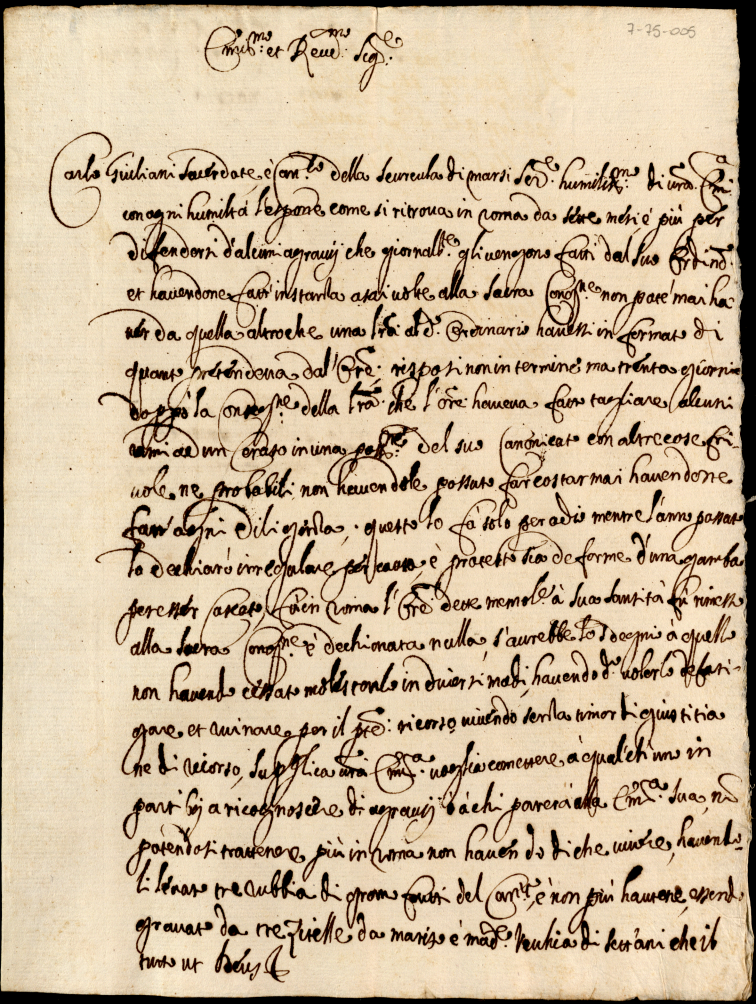 7-75-005
Em.mo et Reve.mo Sig.re
Carlo Giuliani Sacerdote, è Can.co della Scurcula di Marsi Ser.e humiliss.mo di v̄ra Em.a
con ogni humiltà l'espone come si ritrova in roma da sette mesi, è più per
diffendersi d'alcuni agravij che giornalm.te gli vengono fatti dal suo Ordin.o
et havendone fatt' instanza assai volte alla Sacra Cong.ne non poté mai ha
ver da quella altro che una l̄ra al d.o Ordinario havessi in formato di
quanto pretendeva dal' Ore. risposi non in termine ma trenta giorni
doppò la Conseg.ne della l̄ra che l'ore haveva fatto tagliare alcuni
rami ad un in una poss.ne del suo Canonicato con altre cose fri-
vole, ne probabili non havendole possute far costar mai havendone
fatt' ogni diligenza, questo lo fà solo per odio mentre l'anno passato
lo dechiarò irregolare per è deforme d'una gamba
per esser in roma l'Ore dette memo.le à sua Santità fù rimesso
alla Sacra Cong.ne è dechiorata nulla, s'aurebbe lo sdegni à quello
non havendo cessato molestarlo in diversi modi, havendo d.o volerlo defati-
gare et ruinare per il p̄te. ricorso, vivendo senza timor di giustitia
ne di ricorso, supplica v̄ra Em.a voglia comettere à qualch'uno in
partibus a ricognoscere di agravij ò à chi parerà alla Em.a sua, nō
potendosi trattenere più in roma non havendo di che vivere, havendo-
li levato tre rubbia di grano frutti del Can.to, è non più havere, essend
gravato da tre zitelle da marito è mad.e vechia di sett'ani che il
tutto ut Deus